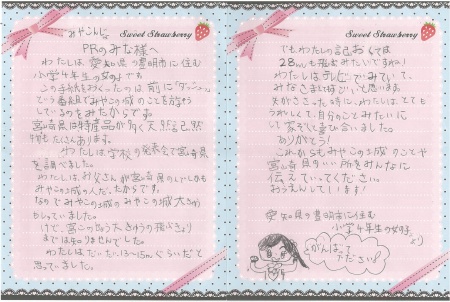 みやこんじょ
Sweet Strawberry
PRのみな様へ
わたしは、愛知県の豊明市に住む
小学4年生の女の子です。
この手紙をおくったのは前に
という番組でみやこの城のことを放そう
しているのをみたからです。
宮崎県は特産品が多く天然
たくさんあります。
わたしは、学校の発表会で宮崎県
を調べました。
わたしは、お父さんが宮崎県の
みやこの城の人だったからです。
なのでみやこの城のみやこの城大
もしっていました。
けど、
までは知りませんでした。
わたしはだいたい13〜15mぐらいだと
思っていました。
Sweet Strawberry
でもわたしの記おくでは
28m
わたしはテレビでみていて、
みなさまはすごいと思いまた
矢がささった時に、わたしは、とても
うれしくて自分のことみたいに
して家ぞくで喜び合いました。
ありがとう!
これからもみやこの城のことや
宮崎県のいい所をみんなに
伝えていってください。
おうえんしています!
愛知県の豊明市に住む
小学4年生の女の子
より
がんばって
ください!